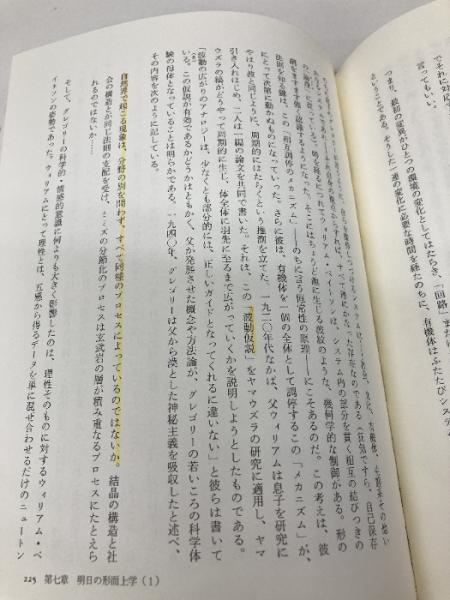 れに対応
言ってもいい。
つまり、最初の変異がひとつの環境の変化としてはたらき、「回路」また
である。そうした一連の変化に必要な時間を経たのちに、有機体はふたたびシステ
ベイトソンは、システム内の部分を貫く相互の結びつきの
網をますます強く認識するようになった。そこにはちょうど池に生じる波紋のような、幾何学的な制御がある。形の
法則を知る鍵は、この「相互調停のメカニズム」――のちに言う恒常性の原理――にこそあるのだ。この考えは、彼
にとって決定に動かぬものになっていった。さらに彼は、有機体を一個の全体として調停するこの「メカニズム」が、
やはり波と同じように、周期的にはたらくという推測を立てた。一九二〇年代なかば、父ウィリアムは息子を研究に
引き入れはじめ、二人は一編の論文を共同で書いた。それは、この「波動仮説」をヤマウズラの研究に適用し、ヤマ
ウズラの縞がどうやって周期的に生じ、体全体に羽先に至るまで広がっていくかを説明しようとしたものである。
「波動の広がりのアナロジーは、少なくとも部分的には、正しいガイドとなってくれるに違いない」と彼らは書いて
いる。この仮説が有効であるかどうかはともかく、父が発酵させた概念や方法論が、グレゴリーの若いころの科学体
験の母体となっていることは明らかである。一九四〇年、グレゴリーは父から漠とした神秘主義を吸収したと述べ、
その内容を次のように記している。
自然界で起こる現象は、分野の別を問わず、すべて同様のプロセスによっているのではないか。結晶の構造と社
会の構造とが同じ法則の支配を受け、ミミズの分節化のプロセスは玄武岩の層が積み重なるプロセスにたとえら
れるのではないか……
そして、グレゴリーの科学的・情感的意識に何よりも大きく影響したのは、理性そのものに対するウィリアム・ベ
イトソンの姿勢であった。ウィリアムにとって理性とは、五感から得るデータを単に混ぜ合わせるだけのニュートン
225 第七章 明日の形而上学（1）